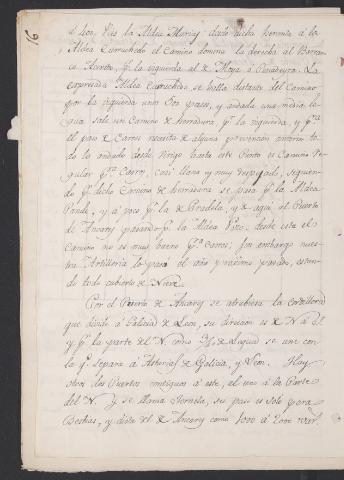 16
Aldea Moreyra desde dicha hermita à la
Aldea Carruchedo el camino domina la derecha al Barran
co, Acevedo, y la izquierda al de
expresada Aldea Carruchedo, se halla distante del Camino
por la izquierda uno 500 pasos, y andada una media le
gua sale un camino de herradura pr. la izquierda, y pa.
el paso de carros necesita de alguna prevencion anterior to
do lo andado desde Vrigo hasta este Punto es camino Re
gular pa. Carros, casi llano y muy despejado, siguien
do pr. dicho Camino de herradura se pasa pr. la Aldea
Pando, y à poco pr. la de Pradela, y de aqui al Puerto
de Ancary pasando pr. la Aldea Pozo, desde esta el
camino no es muy bueno pa. carros; sin embargo nues
tra Artilleria lo pasó el año proximo pasado, estan
do todo cubierto de Nieve.
Por el Puerto de Ancary se atrabiesa la cordillera
que divide à Galicia de Leon, su direccion es de N. à S.
y pr. la parte del N. como de Legua se une con
la qe. separa à Asturias de Galicia, y Leon. Hay
otros dos Puertos contiguos á este, el uno á la Parte
del N. y se llama Fornela, su paso es solo para
Bestias, y dista del de Ancary como 1000 à 2000 var.